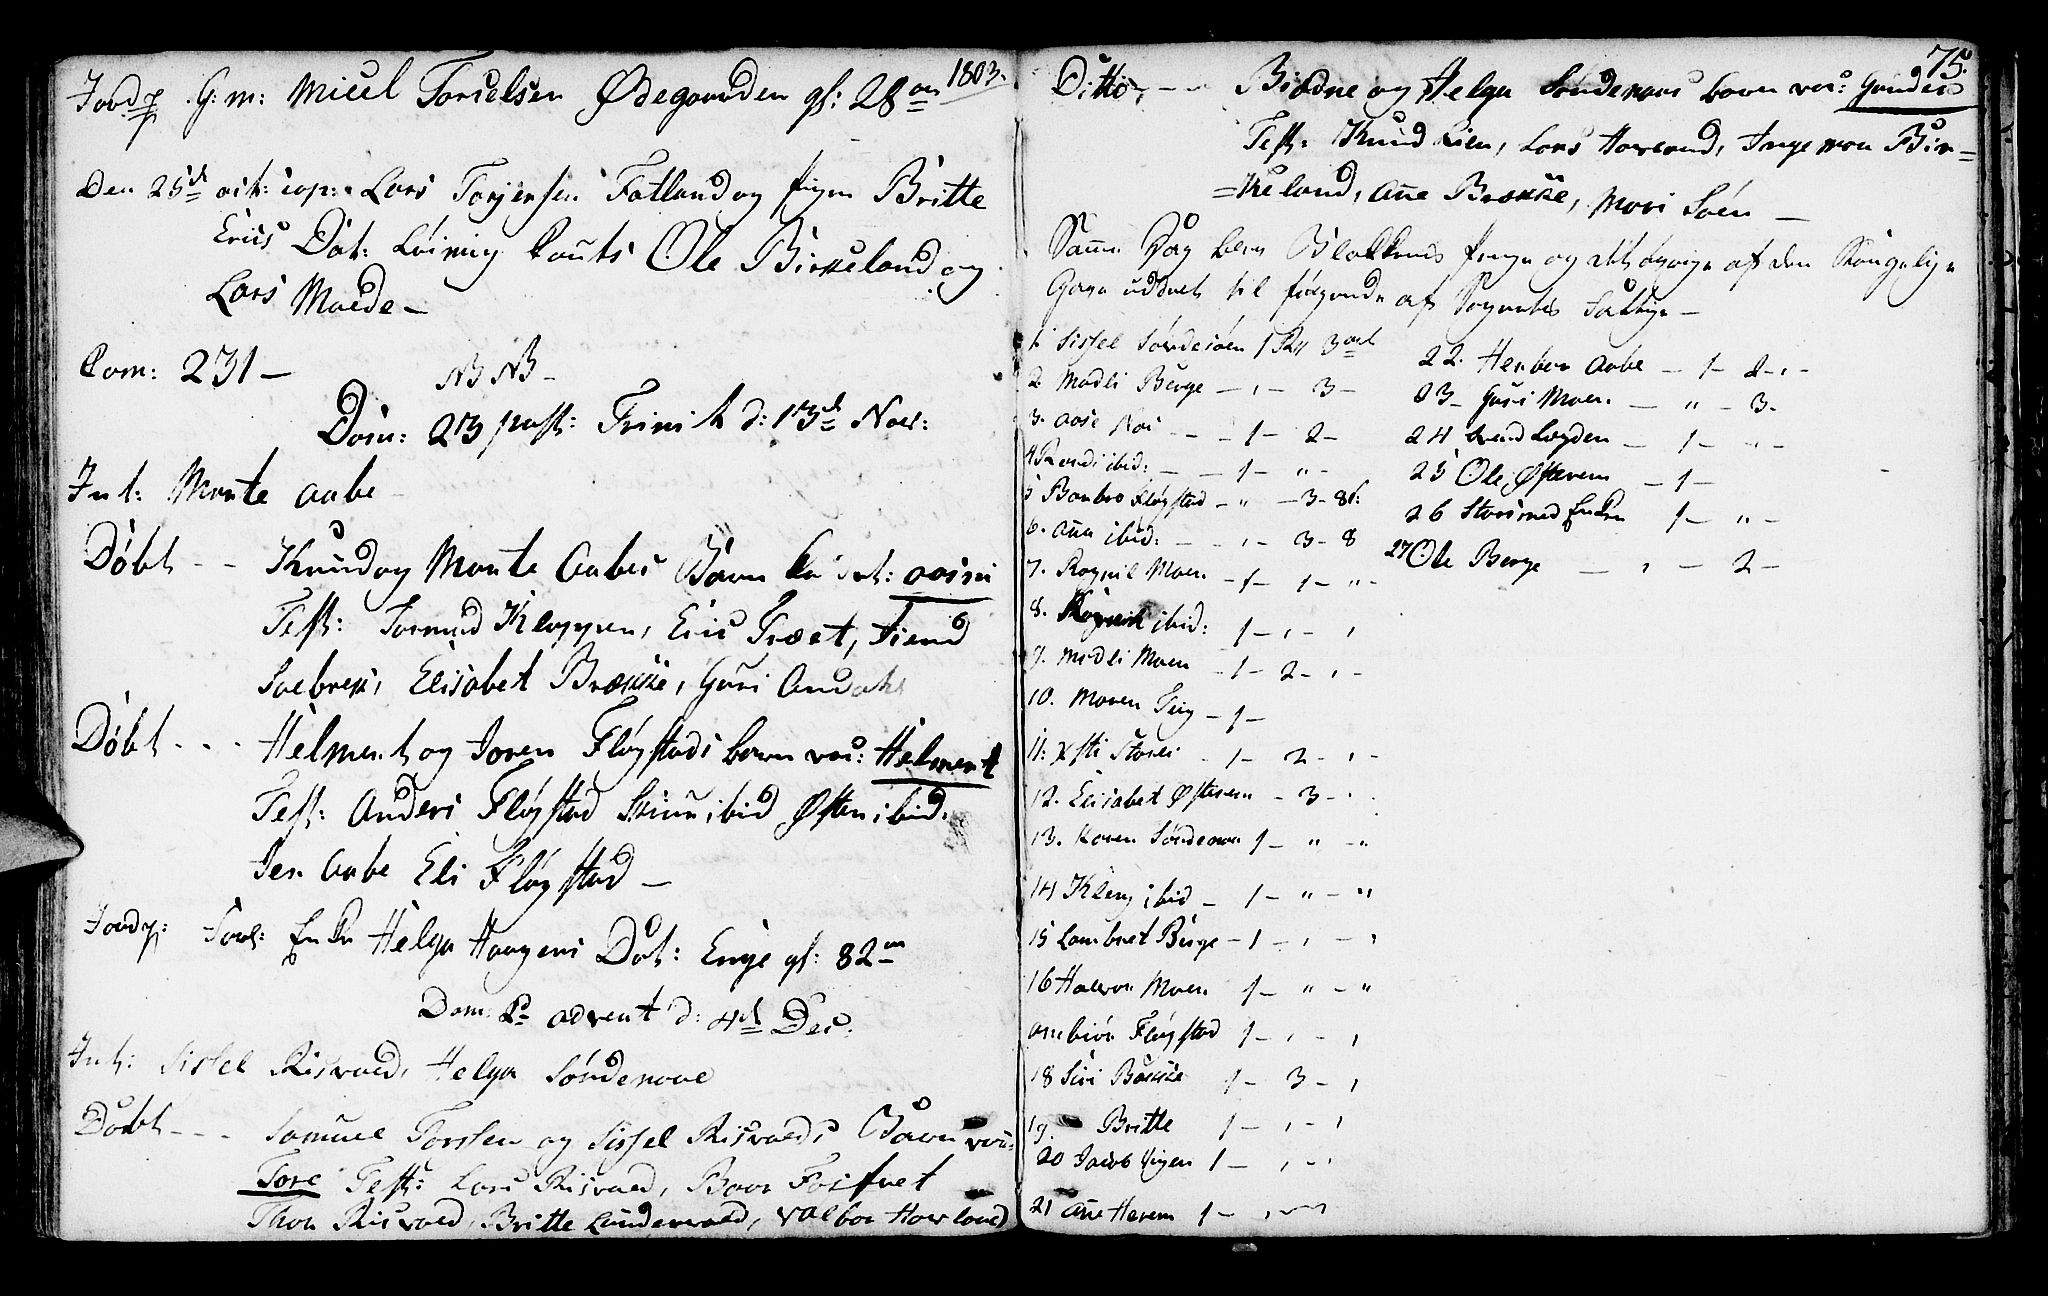 1803.
Jordp. G: m: Micel Torcelsen Ødegaarden gl: 28 aar
Den 25de oct: cop: Lars Torjersen Fatland og pigen Britte
Erics Dat: Løining Cauts Ole Birkeland og
Lars Maede –
Com: 231 –
NB NB –
Dom: 23 post: Trinit d: 13de Nov:
Int: Marte Aabe
Døbt - - Knud og Marte Aabes Barn
Test: Tormud Kloppen, Eric Træet,
Soebrek, Elisabet Brække, Guri
Døbt - - - Helment og Joren Fløgstads barn var: Helment
Test: Anders Fløgstad ibid Østen ibid.
Jen Aabe Eli Fløgstad –
Jordp: Enken Helga Haagens Dat: Enge gl: 82 aar
Dom: 2 advent d: 4de Dec:
Int: Sissel Risvold, Helga Søndenaae
Døbt - - - Samuel Torsten og Sissel Risvolds Barn var:
Tore Test: Lars Risvold,
Thor Risvold, Britte Lundevold, Valbor Havland
75.
Ditto, - - Biødne og Helga Søndenaas barn var: Gunder
Test: Knud Lien, Lars Haveand, Ingemon Bir=
=keland, Ane Brække, Mari Soen –
Same Dag blev Blokkens penge og af den Kongelige
Gave uddeelt til følgende af Sognets Fattige –
1. Sissel Søndeøen 1 Rd 3 ort
2 Madli Berge – , – 3 –
3. Aase Noe – – 1 – 2 –
4 Randi ibid: – – 1 – " –
5 Barbro Fløgstad – " – 3 – 8 s:
6. Ana ibid: – – , – 3 – 8
7. Ragnil Moen – 1 – 1 – " –
8. ibid: 1 – , – ,
9. Madli Moen – 1 – 2 – , –
10. Maren Teig – 1 –
11: Xsti Storli – 1 – 2 – , –
12. Elisabet Østerem – 3 – , .
13. Karen Søndenaa 1 – " – "
14 Kleng ibid – 1 – " – "
15 Lambret Berge – 1 – , – ,
16 Halvor Moen 1 – " – "
Anbiør Fløgstad 1 – , – ,
18 Siri Bække 1 – 3 – ,
19. Britte 1 – , – ,
20 Jacob Vigen 1 – , – ,
21 Ane Herem 1 –
22. Herbor Aabe – 1 – 2 – , –
23 – Guri Moen – " – 3 –
24 Løgden – 1 – " –
25 Ole Østerem – 1 –
26 Enken 1 – " –
27 Ole Berge – , – 2 –